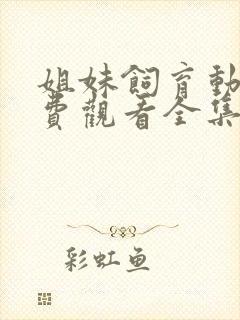 姐妹飼育動
費觀看全集
彩虹鱼